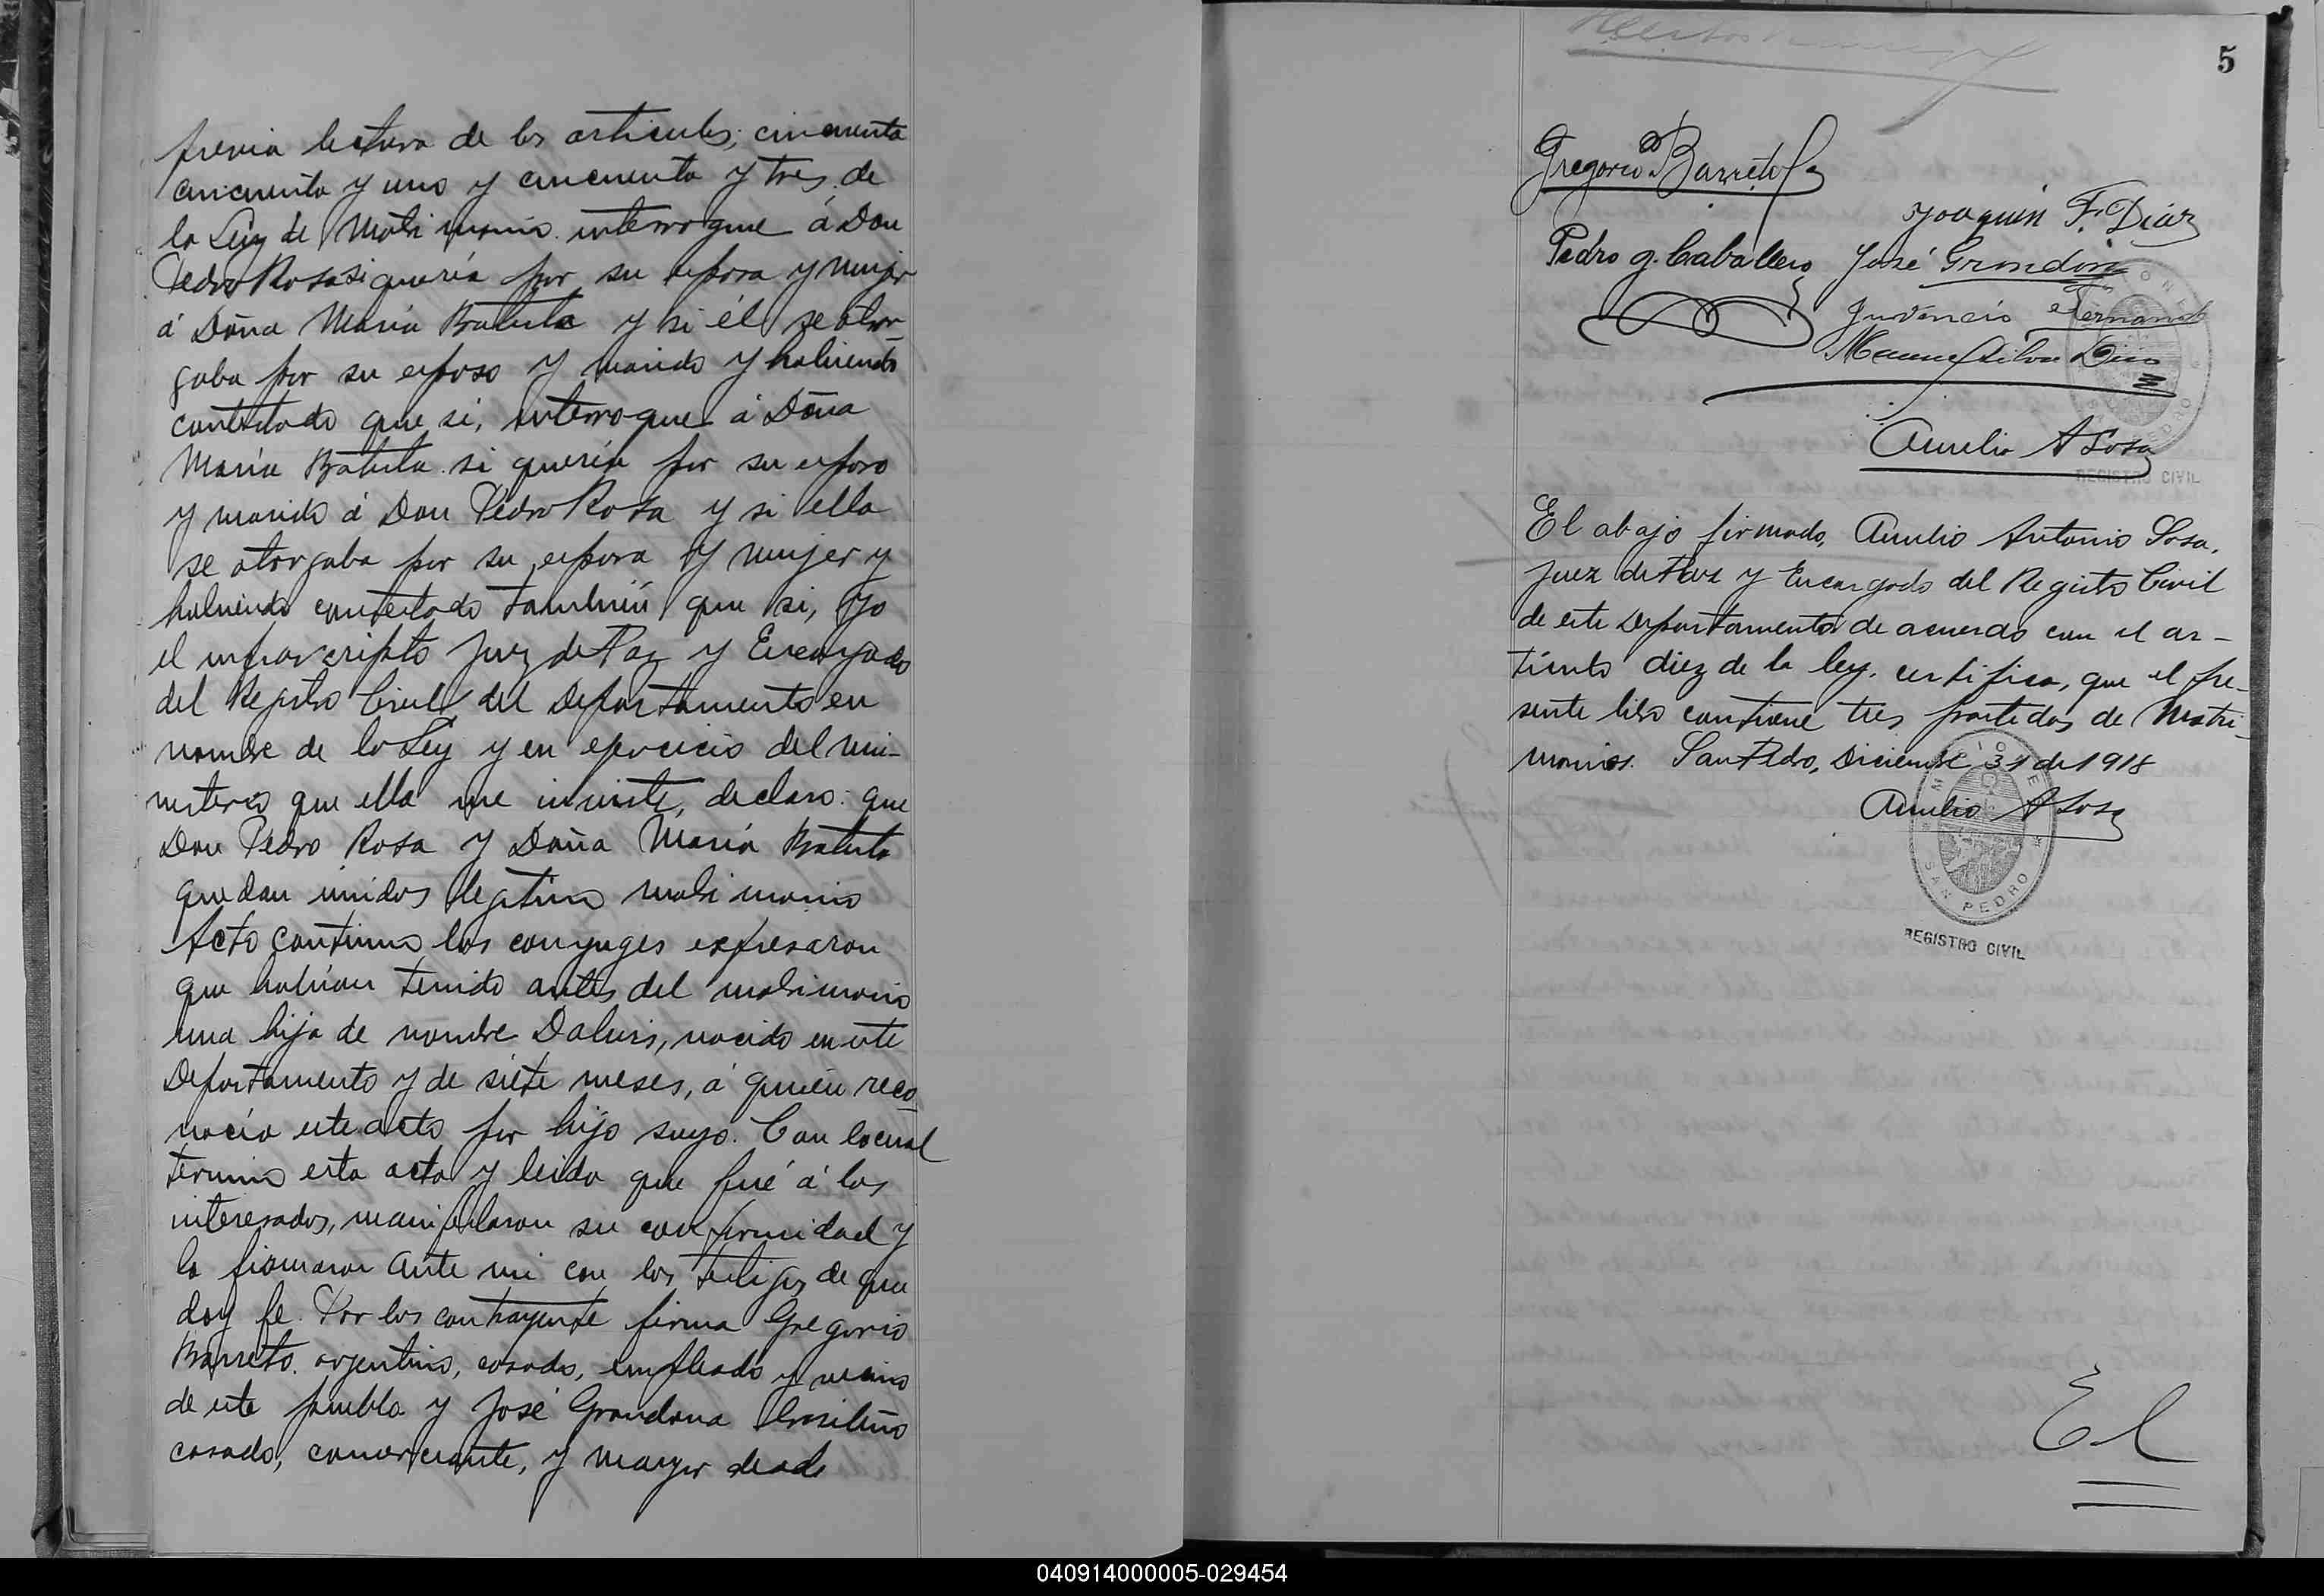 previa lectura de los articulos; cincuenta
cincuenta y uno y cincuenta y tres de
la Ley de Matrimonio interrogue á Don
Pedro Rosa si quería por su esposa y mujer
á Doña María Batista y si él se otor-
gaba por su esposo y marido y habiendo
contestado que si, interrogue á Doña
María Batista si quería por su esposo
y marido á Don Pedro Rosa y si ella
se otorgaba por su esposa y mujer y
habiendo contestado también que si, Yo
el infrascripto Juez de Paz y Encargado
del Registro Civil del Departamento en
nombre de la Ley y en ejercicio del mi-
nisterio que ella me inviste, declaro: que
Don Pedro Rosa y Doña María Batista
quedan unidos legitimo matrimonio
Acto continuo los conyuges expresaron
que habían tenido antes del matrimonio
una hija de nombre, nacido en este
Departamento y de siete meses, á quién reco-
nocía este acto por hijo suyo. Con locual
termino esta acta y leida que fué á los
interesados, manifestaron su conformidad y
la firmaron ante mi con los testigos de que
doy fe. Por los contrayente firma Gregorio
Barreto argentino, casado, empleado y vecino
de este pueblo y José Grondona brasileño
casado, comerciante, y mayor de ade
5
Gregorio Barreto
Joaquin F. Diaz
Pedro G. Caballero José Grondona
Juvencio Fernand
Aurelio A Sosa
REGISTRO CIVIL
El abajo firmado, Aurelio Antonio Sosa,
Juez de Paz y Encargado del Registro Civil
de este Departamento de acuerdo con el ar-
tículo diez de la ley, certifica, que el pre-
sente libro contiene tres partidas de Matri-
monios. San Pedro, Diciembre 31 de 1918
Aurelio A Sosa
MISIONES
SAN PEDRO
REGISTRO CIVIL
El
040914000005-029454